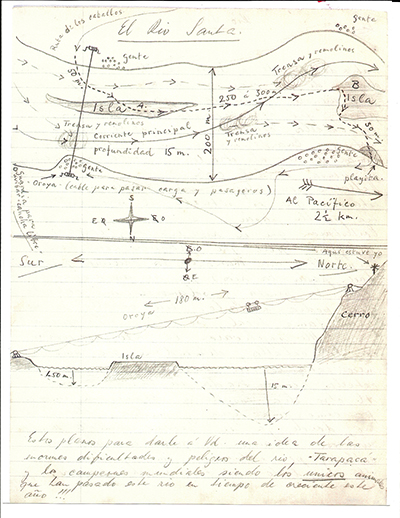 El Rio Santa.
Ruta de los caballos
gente
gente
50 m.
Isla
250 a 300 m
Trensa y remolinos
B
Isla
Trensa y remolinos
Corriente principal
profundidad 15 m.
200 m.
Trensa y remolinos
50 m
gente
gente
playita
Oroya (cable para pasar carga y pasageros)
Al Pacífico
2½ km.
S
E
O
N
Sur
Norte
Aquí estuve yo
180 m.
Oroya
Cerro
Isla
1.50 m
15 m.
Estos planos para darle a Vd. una idea de las
inormes dificultades y peligros del río "Tarapaca"
y los campeones mundiales siendo los unicos
que han pasado este rio en tiempo de creciente este
año !!!